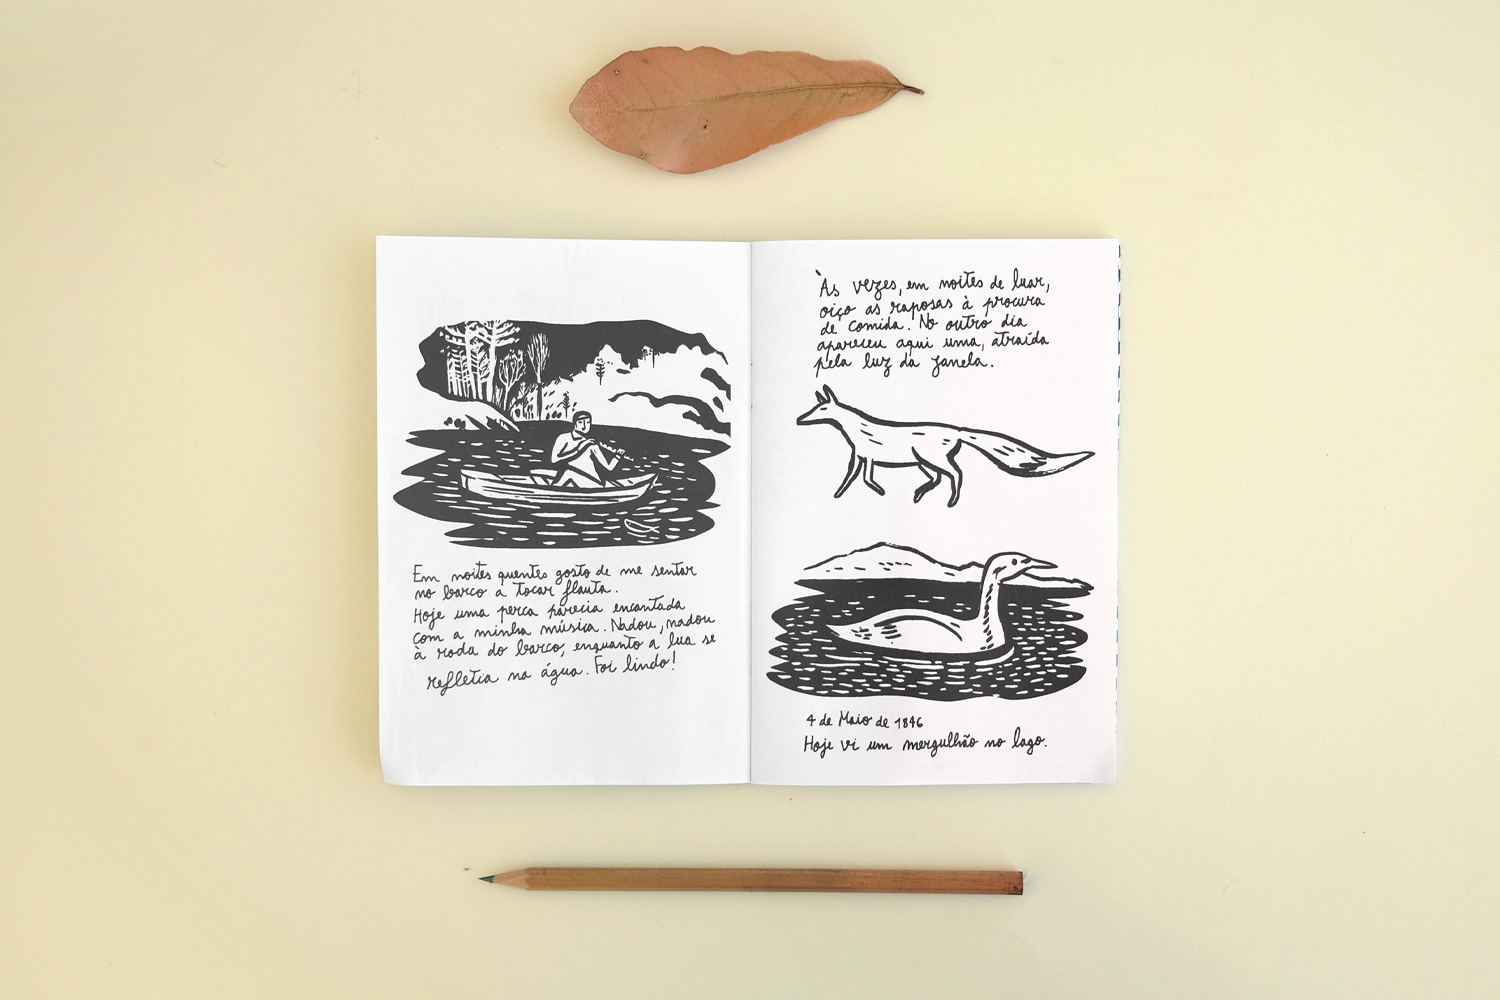 Em noites quentes gosto de me sentar
no barco a tocar flauta.
Hoje uma perca parecia encantada
com a minha música. Nadou, nadou
à roda do barco, enquanto a lua se
refletia na água. Foi lindo!
Às vezes, em noites de luar,
oiço as raposas à procura
de comida. No outro dia
apareceu aqui uma, atraída
pela luz da janela.
4 de Maio de 1846
Hoje vi um mergulhão no lago.